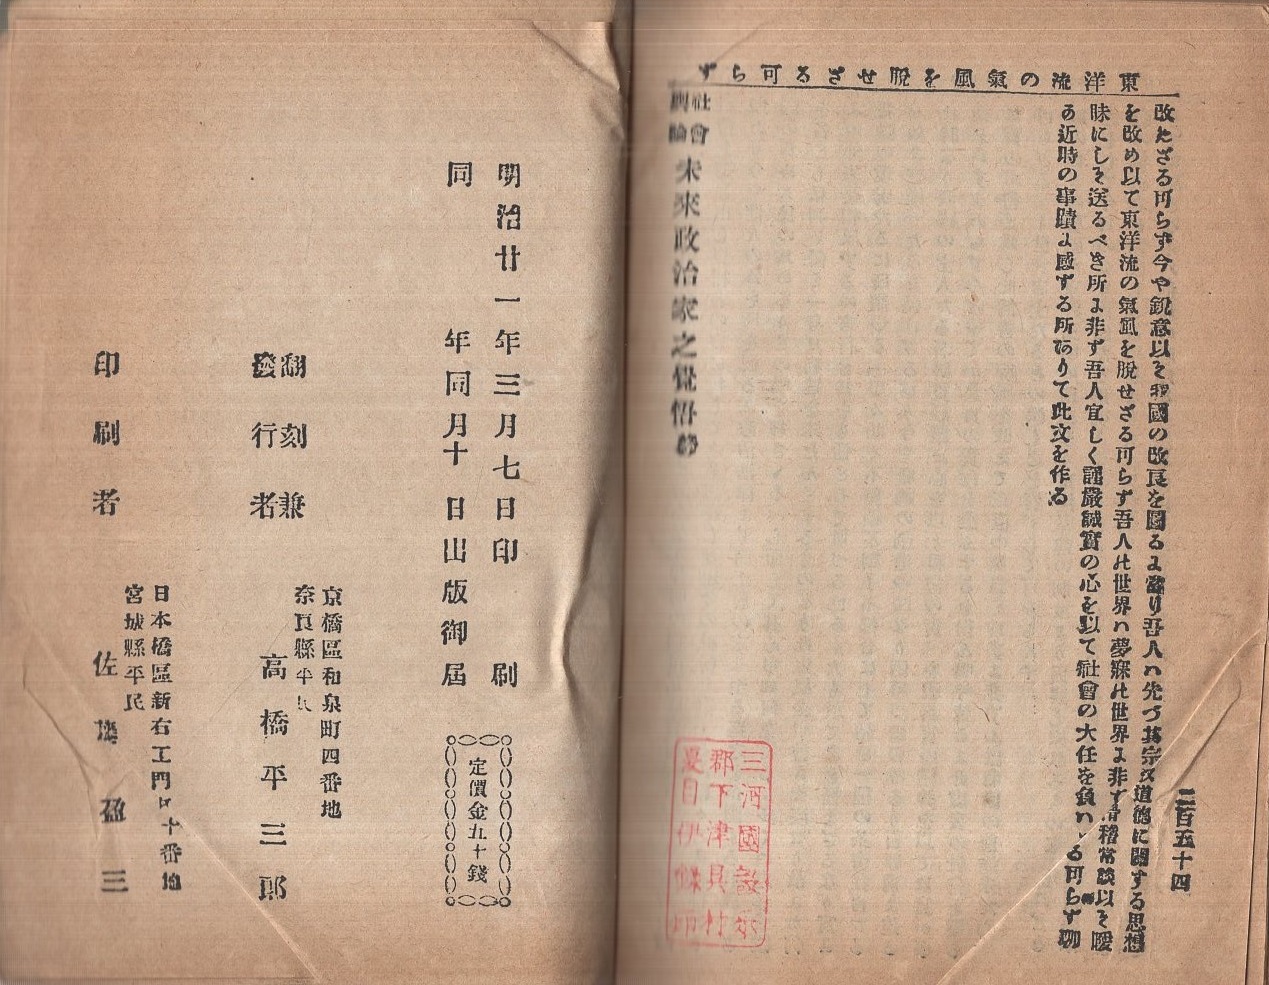 東洋流の氣風を脫せざる可らず
二百五十四
改たざる可らず今や銳意以て我國の改良を圖るよ當り吾人ハ先づ其宗又道德に關する思想
を改め以て東洋流の氣風を脫せざる可らず吾人此世界ハ夢寐此世界よ非ず滑稽常談以て曖
昧にして送るべき所よ非ず吾人宜しく謹嚴誠實の心を以て社會の大任を負ハざる可らず聊
る近時の事蹟よ感ずる所ありて此文を作る
社會
輿論
未來政治家之覺悟終
三河國設樂
郡下津具村
夏目伊
明治廿一年三月七日印刷
同年同月十日出版御屆
定價金五十錢
翻刻兼
發行者
京橋區和泉町四番地
奈良縣平民
高橋平三郎
印刷者
日本橋區新右工門町十番地
宮城縣平民
佐盈三